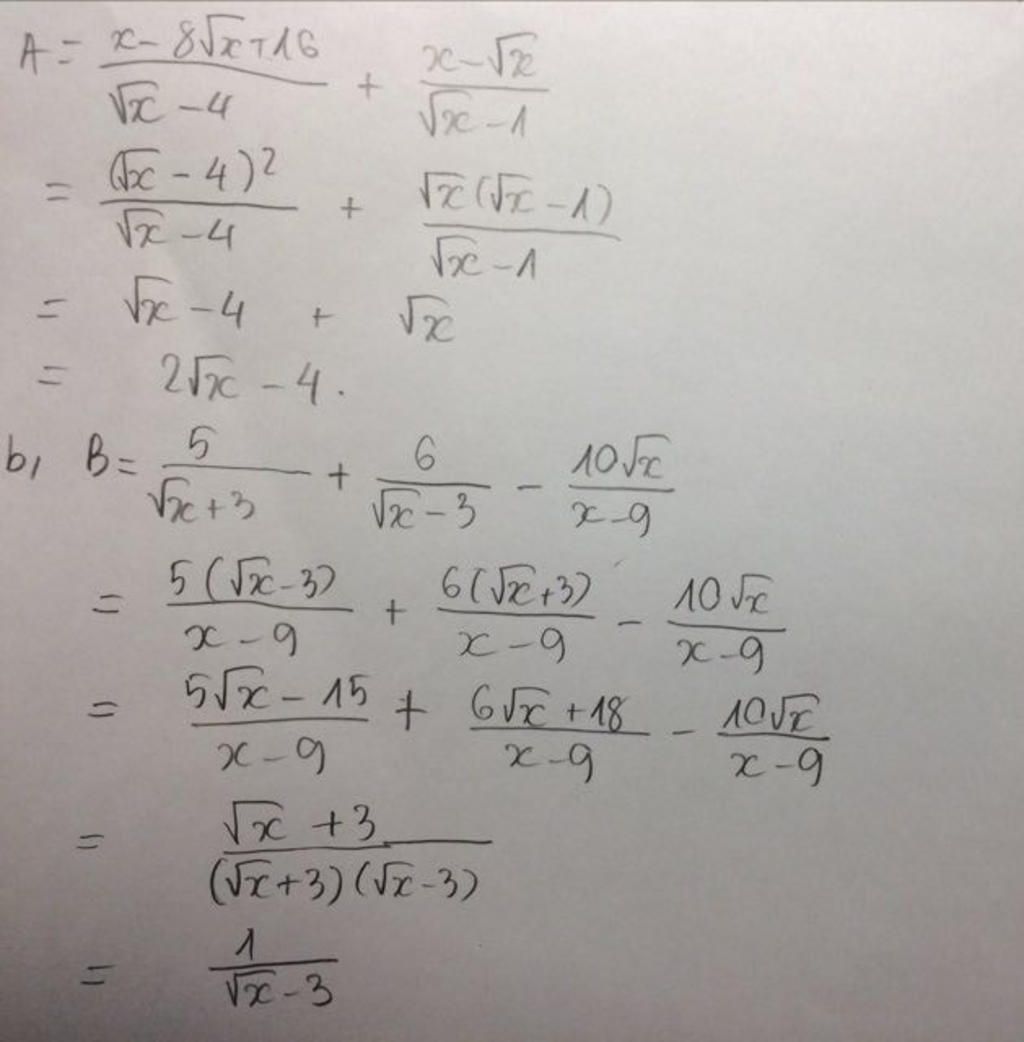 A = \frac{x - 8\sqrt{x} + 16}{\sqrt{x} - 4} + \frac{x - \sqrt{x}}{\sqrt{x} - 1}
= \frac{(\sqrt{x} - 4)^2}{\sqrt{x} - 4} + \frac{\sqrt{x}(\sqrt{x} - 1)}{\sqrt{x} - 1}
= \sqrt{x} - 4 + \sqrt{x}
= 2\sqrt{x} - 4.
b, B = \frac{5}{\sqrt{x} + 3} + \frac{6}{\sqrt{x} - 3} - \frac{10\sqrt{x}}{x - 9}
= \frac{5(\sqrt{x} - 3)}{x - 9} + \frac{6(\sqrt{x} + 3)}{x - 9} - \frac{10\sqrt{x}}{x - 9}
= \frac{5\sqrt{x} - 15}{x - 9} + \frac{6\sqrt{x} + 18}{x - 9} - \frac{10\sqrt{x}}{x - 9}
= \frac{\sqrt{x} + 3}{(\sqrt{x} + 3)(\sqrt{x} - 3)}
= \frac{1}{\sqrt{x} - 3}